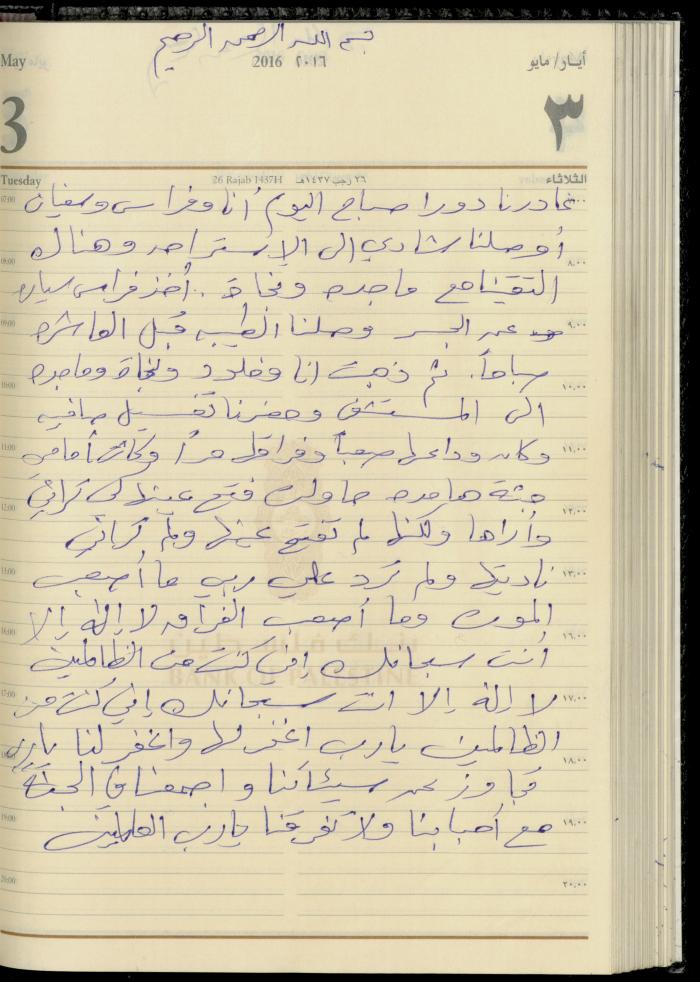 بسم الله الرحمن الرحيم
May 2016 ٢٠١٦ أيـار/ مايو
3 ٣
Tuesday 26 Rajab 1437H ٢٦ رجب ١٤٣٧هـ الثلاثاء
07:00 غادرنا دورا صباح اليوم أنا وفراس وسفيان
أوصلنا شادي إلى الاستراحه وهناك
08:00 ٨،٠٠
التقينا مع ماجده ونجاة .. أخذ فراس سياره
09:00 ٩،٠٠
عبر الجسر وصلنا الطيبه قبل العاشره
صباحاً. ثم ذهبت انا وخلود ونجاة وماجده
10:00 ١٠،٠٠
الى المستشفى وحضرنا تغسيل صافيه
11:00 ١١،٠٠
وكان وداعها صعباً وفراقها مراً وكانت أمامي
جثة هامده حاولت فتح عينها لكي تراني
12:00 ١٢،٠٠
وأراها ولكنها لم تفتح عينها ولم تراني
13:00 ١٣،٠٠
ناديتها ولم ترد علي ربي ما أصعب
الموت وما أصعب الفراق لا إله إلا
16:00 ١٦،٠٠
بنك فلسطين
أنت سبحانك إني كنت من الظالمين
BANK OF PALESTINE
17:00 ١٧،٠٠
لا إله إلا انت سبحانك إني كنت من
الظالمين يارب اغفر لها واغفر لنا يارب
١٨،٠٠
تجاوز عن سيئاتنا واجمعنا في الجنة
19:00 ١٩،٠٠
مع أحبابنا ولا تفرقنا يارب العالمين
20:00 ٢٠،٠٠